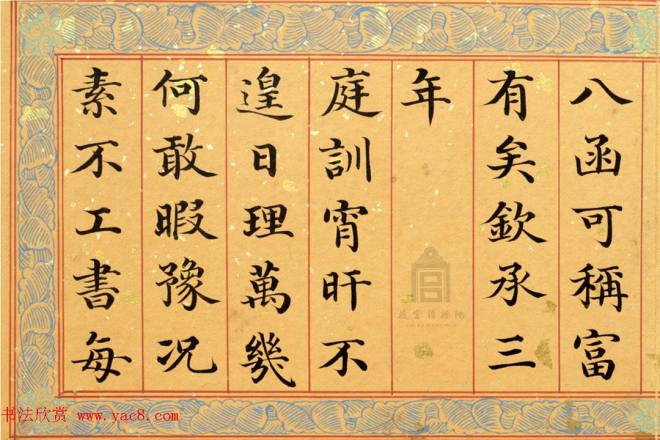 八函可稱富
有矣欽承三
年
庭訓宵旰不
遑日理萬幾
何敢暇豫況
素不工書每
故宮博物院
书法欣赏 www.yac8.com